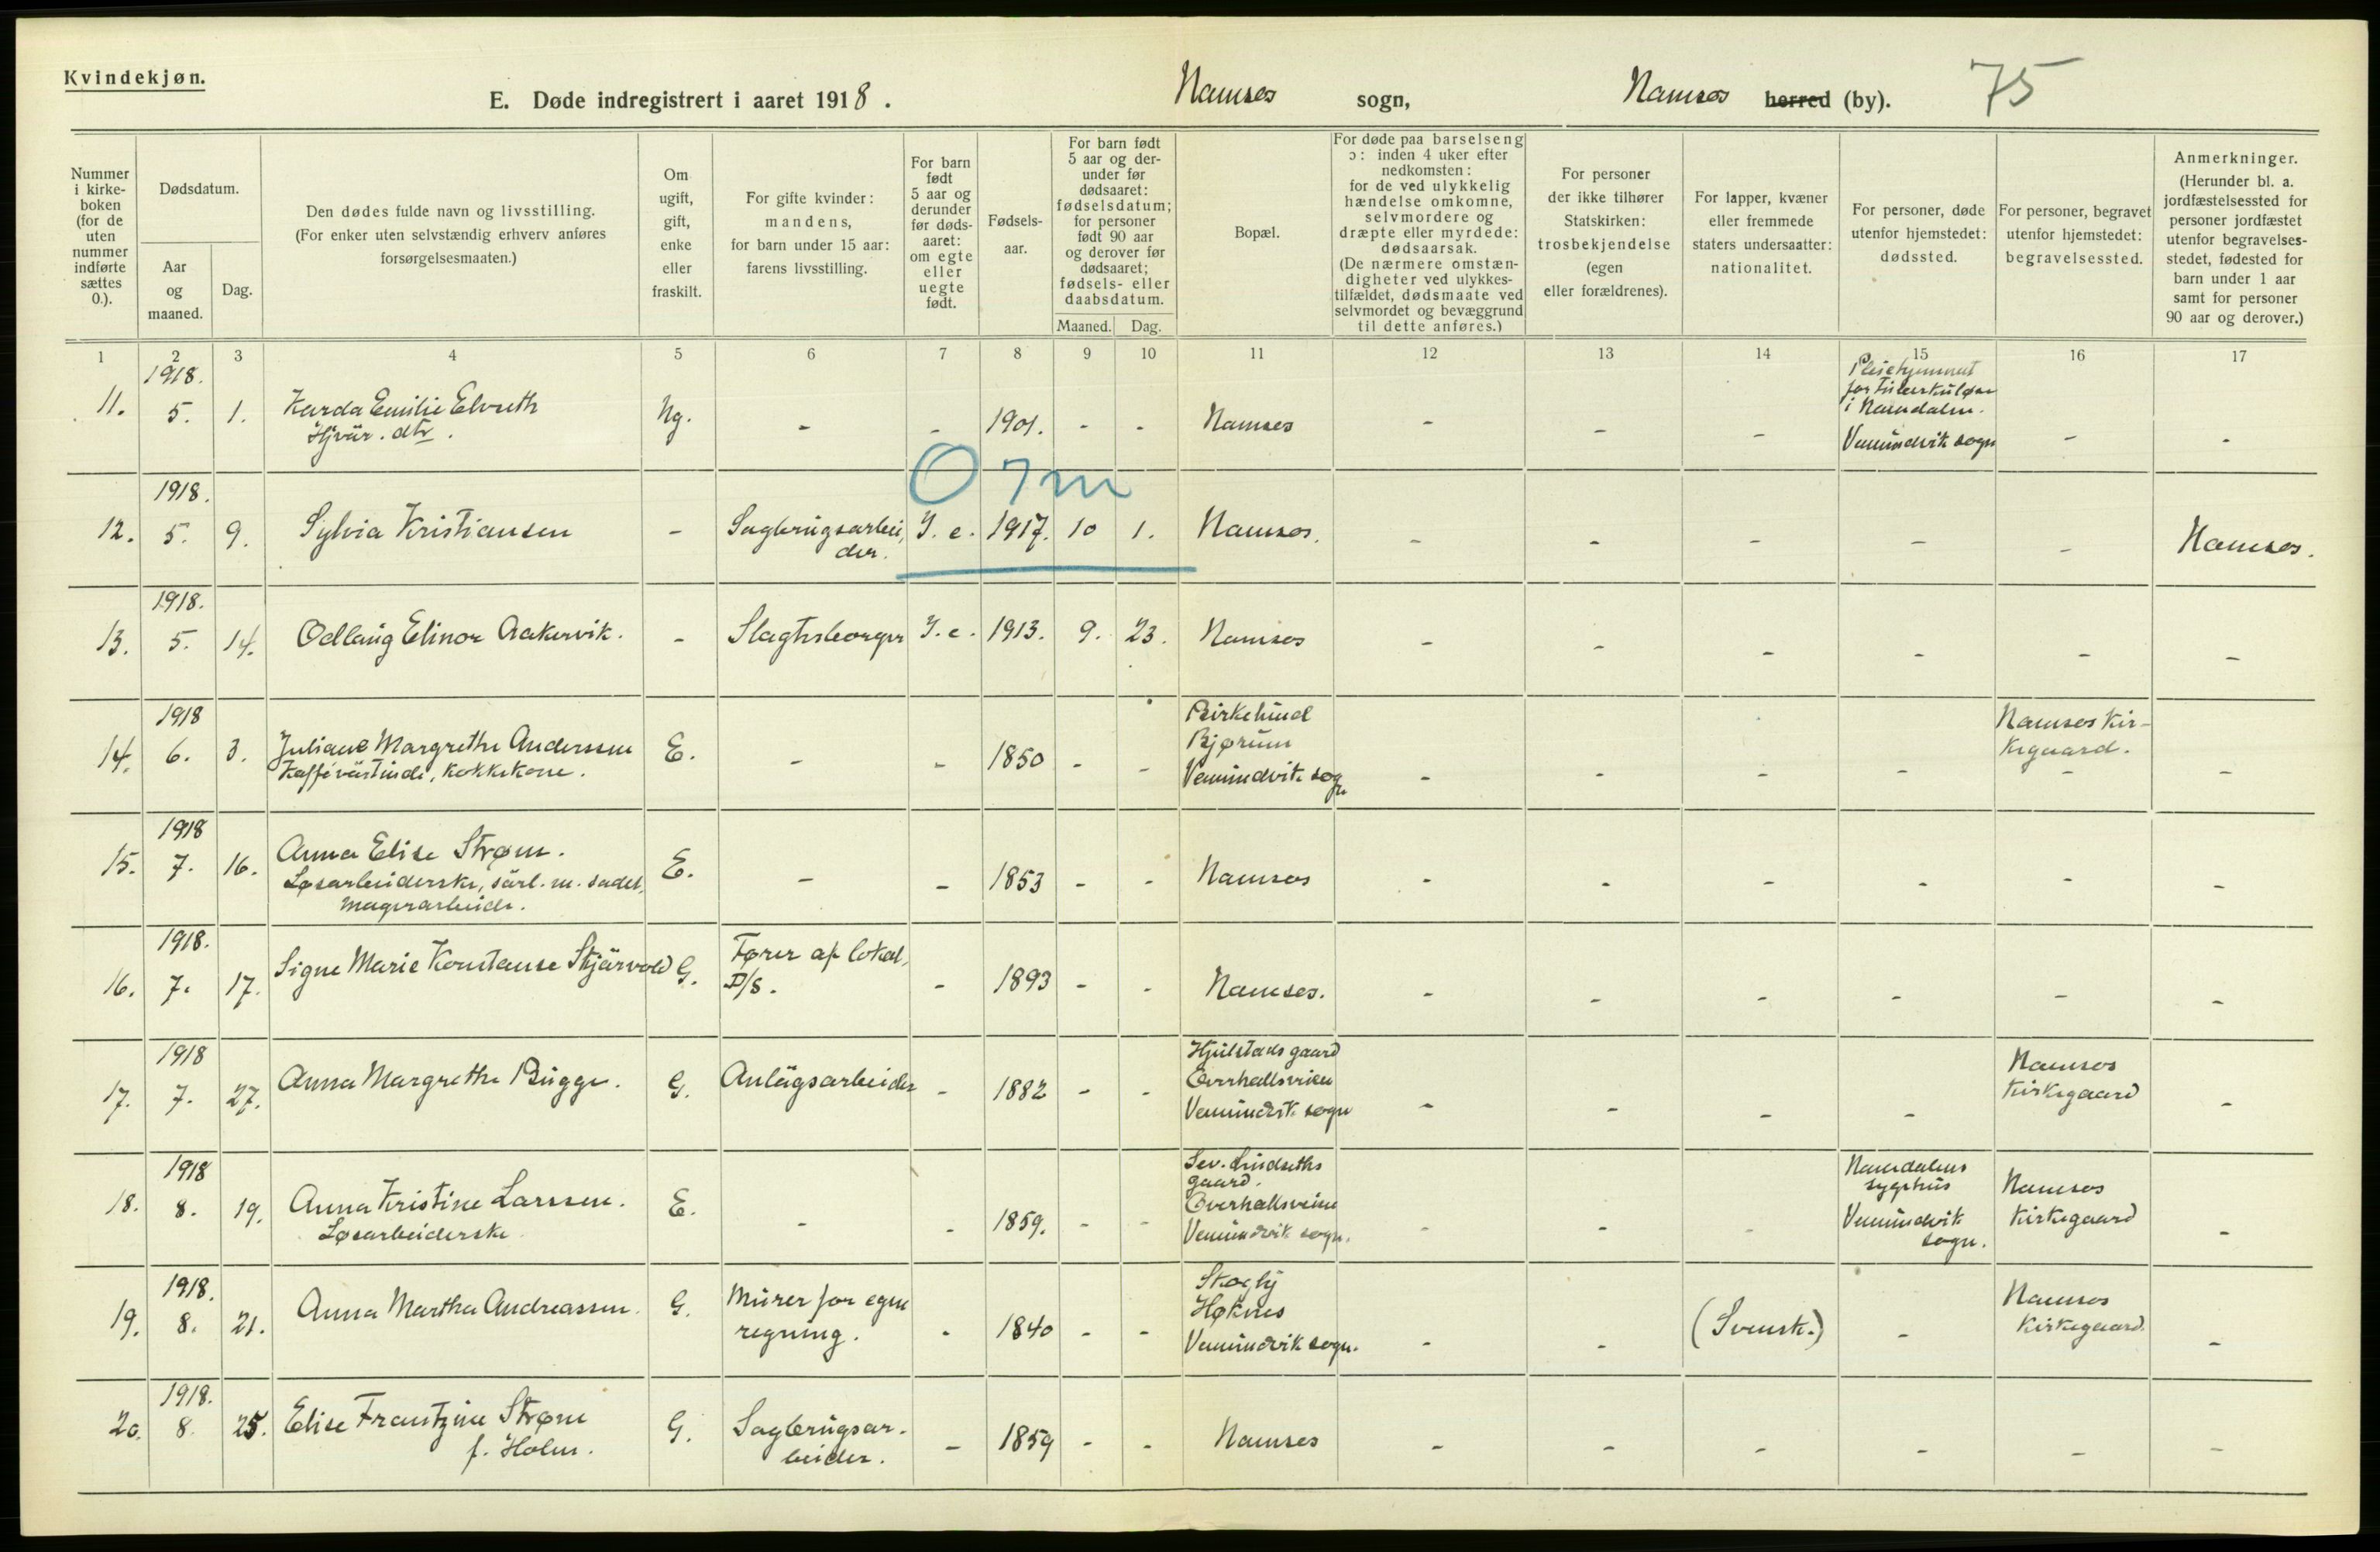 Kvindekjøn.
E. Døde indregistrert i aaret 1918. Namsos sogn, Namsos herred (by). 75
Nummer i kirke-boken (for de uten nummer indførte sættes 0.).
Dødsdatum.
Aar og maaned.
Dag.
Den dødes fulde navn og livsstilling.
(For enker uten selvstændig erhverv anføres forsørgelsesmaaten.)
Om ugift, gift, enke eller fraskilt.
For gifte kvinder: mandens, for barn under 15 aar: farens livsstilling.
For barn født 5 aar og derunder før døds-aaret: om egte eller uegte født.
Fødsels-aar.
For barn født 5 aar og der-under før dødsaaret: fødselsdatum; for personer født 90 aar og derover før dødsaaret; fødsels- eller daabsdatum.
Maaned. Dag.
Bopæl.
For døde paa barselseng ɔ: inden 4 uker efter nedkomsten: for de ved ulykkelig hændelse omkomne, selvmordere og dræpte eller myrdede: dødsaarsak.
(De nærmere omstæn-digheter ved ulykkes-tilfældet, dødsmaate ved selvmordet og bevæggrund til dette anføres.)
For personer der ikke tilhører Statskirken: trosbekjendelse (egen eller forældrenes).
For lapper, kvæner eller fremmede staters undersaatter: nationalitet.
For personer, døde utenfor hjemstedet: dødssted.
For personer, begravet utenfor hjemstedet: begravelsessted.
Anmerkninger.
(Herunder bl. a. jordfæstelsessted for personer jordfæstet utenfor begravelses-stedet, fødested for barn under 1 aar samt for personer 90 aar og derover.)
1 2 3 4 5 6 7 8 9 10 11 12 13 14 15 16 17
1918.
11. 5. 1. Emilie Ug. - - 1901. - - Namsos - - - i Namdalen. Vemundvik sogn - -
dtr.
0 7 m
1918.
12. 5. 9. Sylvia Kristiansen - Sagbrugsarbei, der. I. e. 1917. 10 1. Namsos. - - - - - Namsos.
1918.
13. 5. 14. Odlaug Elinor Aakervik. - Slagtsborger I. e. 1913. 9. 23. Namsos - - - - - -
1918
14. 6. 3. Juliane Margrethe Anderssen E. - - 1850 - - Birkelund Bjørum Vemundvik sogn - - - - Namsos Kir-kegaard. -
Kaffévärtinde, kokkekone.
1918
15. 7. 16. Anna Elise Strøm. E. - - 1853 - - Namsos - - - - - -
Løsarbeiderske, särl. m. sadel, magerarbeide.
1918.
16. 7. 17. Signe Marie Konstanse Skjärvold G. Fører af lokal, D/S. - 1893 - - Namsos. - - - - - -
1918
17. 7. 27. Anna Margrethe Bugge. G. Anlägsarbeider - 1882 - - Hjulstads gaard Overhallsveien Vemundvik sogn - - - - Namsos Kirkegaard -
1918
18. 8. 19. Anna Kristine Larssen. E. - - 1859. - - Sev. Lindseths gaard. Overhallsveien Vemundvik sogn. - - - Namdalens sygehus Vemundvik sogn. Namsos Kirkegaard -
Løsarbeiderske
1918.
19. 8. 21. Anna Martha Andreassen. G. Murer for egen regning. - 1840 - - Skogly Høknes Vemundvik sogn. - - (Svensk.) - Namsos Kirkegaard. -
1918.
20. 8. 25. Elise Frantzine Strøm G. Sagbrugsar-beider. - 1859 - - Namsos - - - - - -
f. Holm.